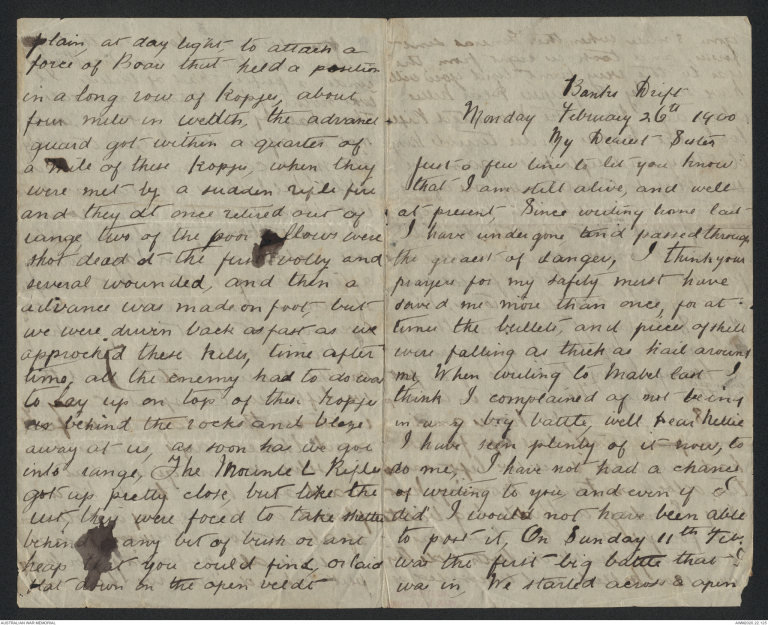 Banks Drift
Monday February 26th 1900
My Dearest Sister
Just a few line to let you know
that I am still alive, and well
at present, Since writing home last
I have undergone and passed through
the greatest of danger, I think your
prayers for my safety must have
saved me more than once, for at
times the bullets, and pieces of shell
were falling as thick as hail around
me, When writing to Mabel last I
think I complained of not being
in any big battle, well Dear Nellie
I have seen plenty of it now, to
do me, I have not had a chance
of writing to you, and even if I
did I would not have been able
to post it, On Sunday 11th Feb,
was the first big battle that I
was in, We started across a open
plain, at day light to attack a
force of Boars that held a position
in a long row of Kopjes, about
four miles in width, the advance
guard got within a quarter of
a mile of these Kopjes, when they
were met by a sudden rifle fire
and they at once retired out of
range, two of the poor fellows were
shot dead at the first volley and
several wounded, and then a
advance was made on foot, but
we were driven back as fast as we
approched these hills, time after
time, all the enemy had to do was
to lay up on top of these Kopjes
behind the rocks and blaze
away at us, as soon has we got
into range, The Mounted Rifles
got up pretty close, but like the
rest, they were foced to take shelter
behind any bit of bush or ant
heap that you could find, or laid
flat down on the open veldt
AUSTRALIAN WAR MEMORIAL
AWM2020.22.125